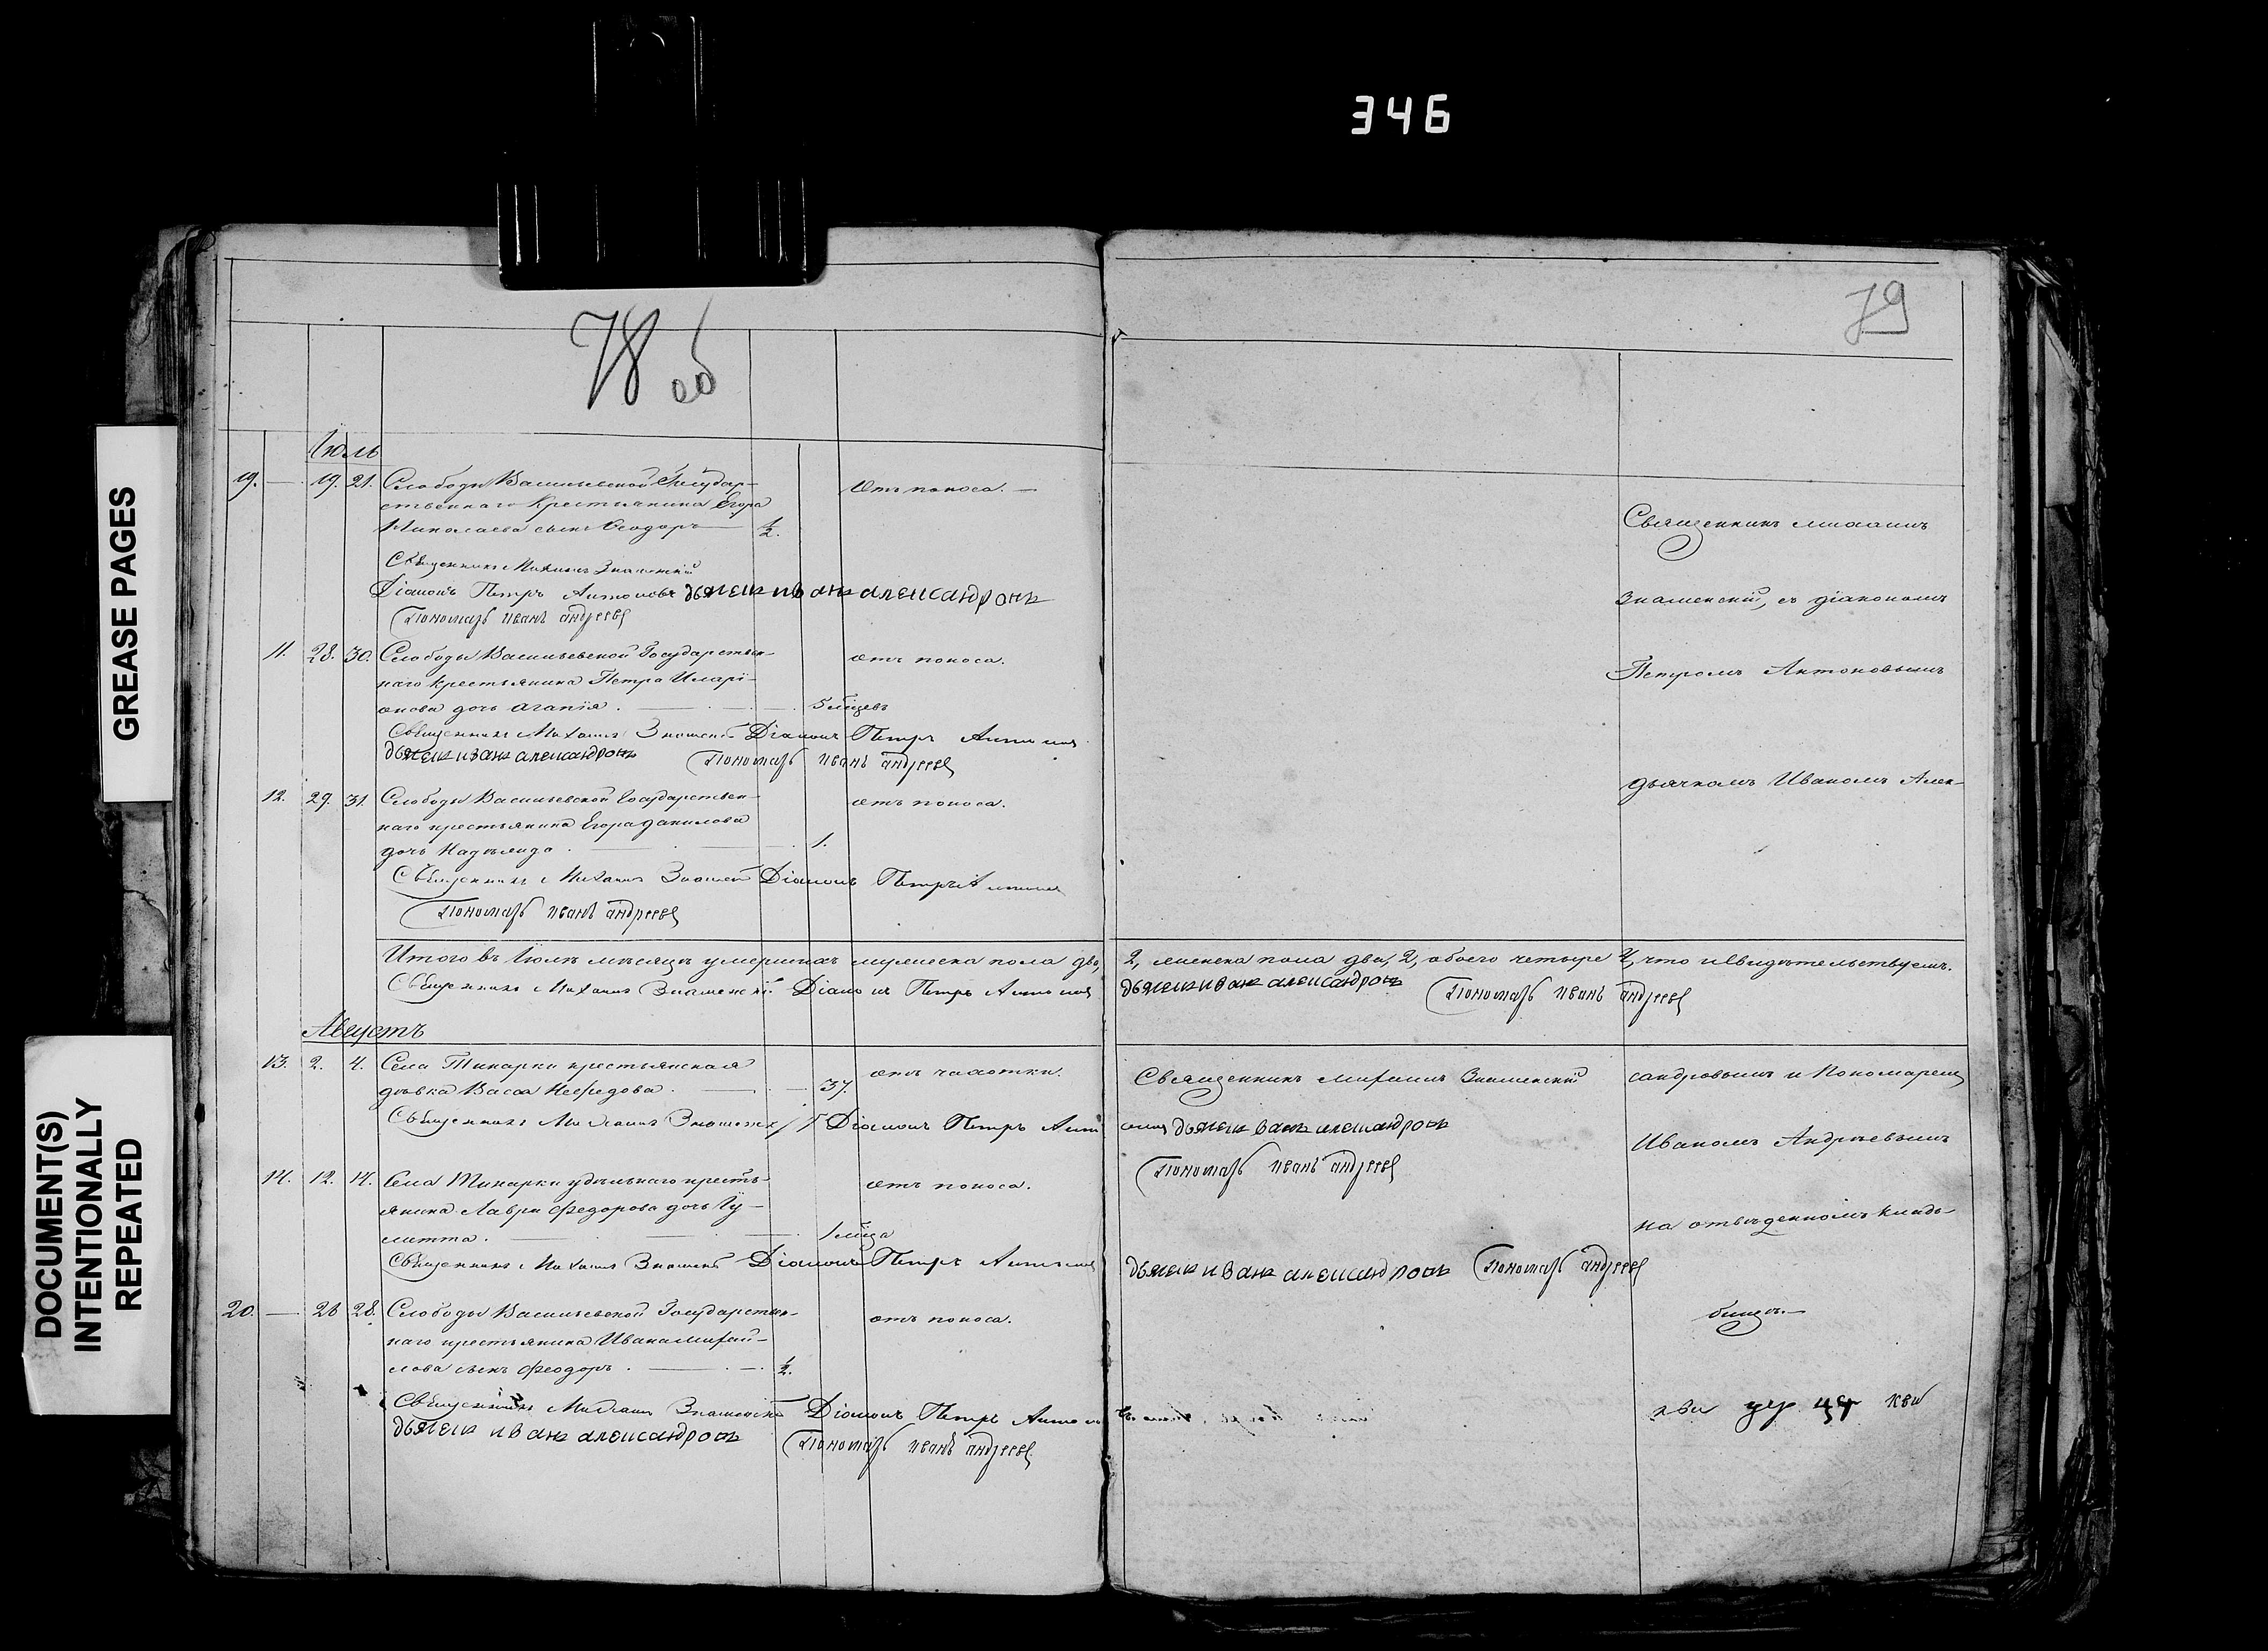 346
GREASE PAGES
DOCUMENT(S)
INTENTIONALLY
REPEATED
78 об
79
Іюль
19. — 19. 21. Слободы Васильевской Государ-
ственнаго крестьянина Егора
Николаева сынъ Ѳеодоръ — 1/2.
отъ поноса. —
Священникъ Михаилъ Знаменскій
Діаконъ Петръ Антоновъ дьячекъ иванъ александровъ
Пономарь иванъ андреевъ
11. 28. 30. Слободы Васильевской Государствен-
наго крестьянина Петра Иларі-
онова дочь Агапія. — 5 мѣсяцевъ
отъ поноса.
Священникъ Михаилъ Знаменскій Діаконъ Петръ Антоновъ
дьячекъ иванъ александровъ Пономарь иванъ андреевъ
12. 29. 31. Слободы Васильевской Государствен-
наго крестьянина Егора Данилова
дочь Надежда. — 1.
отъ поноса.
Священникъ Михаилъ Знаменскій Діаконъ Петръ Антоновъ
Пономарь иванъ андреевъ
Итого въ Іюлѣ мѣсяцѣ умершихъ мужеска пола два, 2, женска пола два, 2, обоего четыре 4, что и свидѣтельствуемъ.
Священникъ Михаилъ Знаменскій Діаконъ Петръ Антоновъ дьячекъ иванъ александровъ Пономарь иванъ андреевъ
Августъ
13. 2. 4. Села Тинарки крестьянская
дѣвка Васса Нефедова. — 37.
отъ чахотки.
Священникъ Михаилъ Знаменскій Діаконъ Петръ Антоновъ дьячекъ иванъ александровъ
Пономарь иванъ андреевъ
14. 12. 14. Села Тинарки удѣльнаго кресть-
янина Лавра Федорова дочь Іу-
литта. — 1 мѣсяца
отъ поноса.
Священникъ Михаилъ Знаменскій Діаконъ Петръ Антоновъ дьячекъ иванъ александровъ Пономарь андреевъ
20. — 26 28. Слободы Васильевской Государствен-
наго крестьянина Ивана Михай-
лова сынъ Феодоръ. — 1/2.
отъ поноса.
Священникъ Михаилъ Знаменскій Діаконъ Петръ Антоновъ
дьячекъ иванъ александровъ Пономарь иванъ андреевъ
Священникъ михаилъ
Знаменскій, съ діакономъ
Петромъ Антоновымъ
дьячкомъ Иваномъ Алек-
Священникъ михаилъ Знаменскій
сандровымъ и Пономаремъ
Иваномъ Андреевымъ
на отведенномъ кладъ-
бищѣ. —